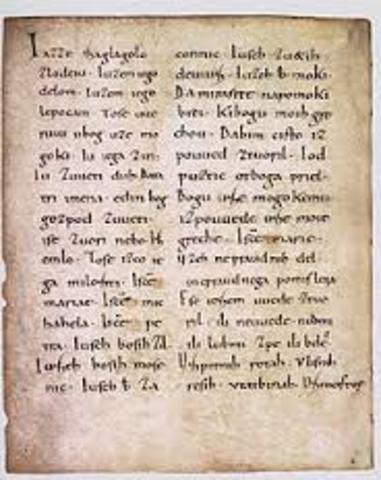 Iazze zaglagolo
Zlodeiu· Iuzem iego
delom· Iuzem iego
lepocam· Tose uue
ruiu ubog uze mo
goki· Iu iega Zin·
Iu Zuueti duh· Data
tri imena· edin bog
gozpod Zuueti·
ise Zuori nebo· Iz
emlo· Tose izco ie
ga milosti· Isce
mariae· Isce mic
hahela· Isce pe
tra· Iuseh bosih Zil·
Iuzeh bosih mose
nic· Iuseh b· Za
connic· Iuseh Zuetih
deuuiz· Iuzeh b· moki·
Da mi raste napomoki
biti· Kibogu moih gre
chou· Dabim cisto iz
poued ztuoril· Iod
puztic otboga priel·
Bogu uze mogokemu
izpouuede uze moie
greche· Isce marie·
uzeh nepraudnih del
inepraudnega pomislena
Ese iesem uuede ztuo
ril· ili neuuede· nudmi
ili lubmi· Zpe ili bde·
Uzpitnih rotah· Vlisnih
resih· vtatbinah·